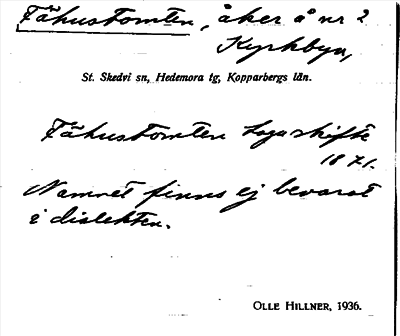 Fähustomten, åker å nr 2
Kyrkbyn,
St. Skedvi sn, Hedemora tg, Kopparbergs län.
Fähustomten Laga skifte
1871.
Namnet finns ej bevarat
i dialekten.
OLLE HILLNER, 1936.